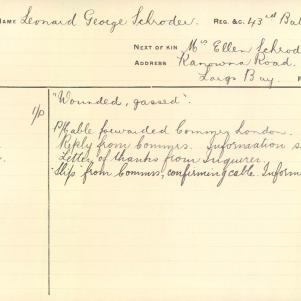 NAME Leonard George Schroder. REG. &C. 43rd Bat
NEXT OF KIN Mrs Ellen Schrod
ADDRESS Kanowna Road.
Largs Bay.
1/p "Wounded, gassed".
P/Cable forwarded Commrs London.
Reply from Commrs. Information s
Letter of thanks from Inquirer.
"Slip" from Commrs, confirming cable. Inform